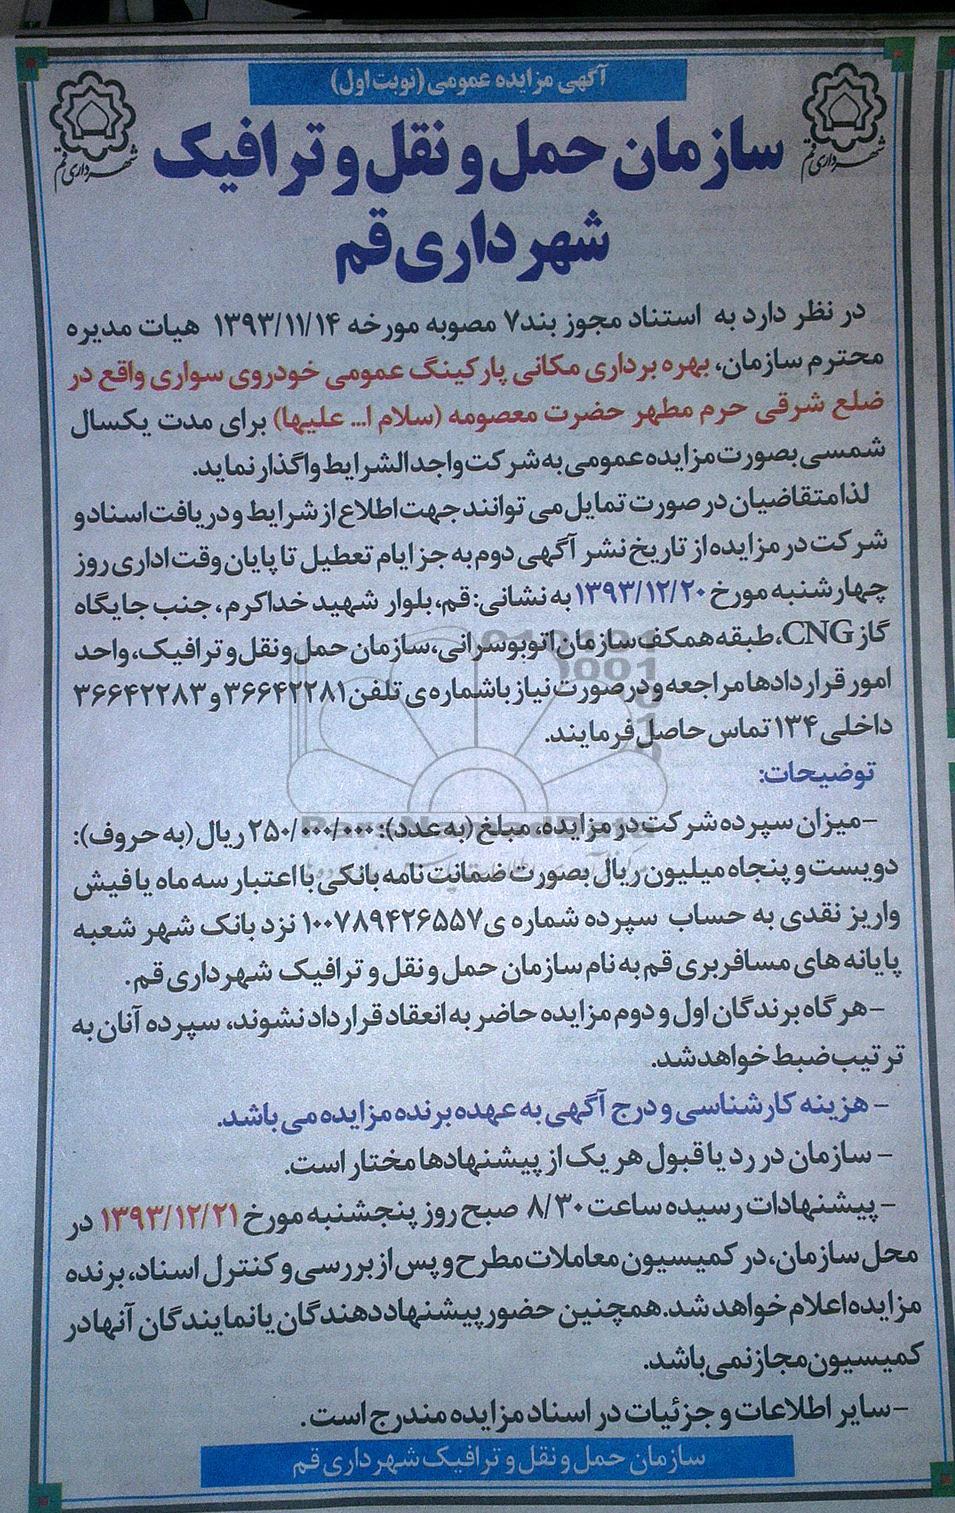 آگهی مزایده عمومی (نوبت اول)
سازمان حمل و نقل و ترافیک
شهرداری قم
شهرداری قم
شهرداری قم
در نظر دارد به استناد مجوز بند ۷ مصوبه مورخه ۱۳۹۳/۱۱/۱۴ هیات مدیره
محترم سازمان، بهره برداری مکانی پارکینگ عمومی خودروی سواری واقع در
ضلع شرقی حرم مطهر حضرت معصومه (سلام ا... علیها) برای مدت یکسال
شمسی بصورت مزایده عمومی به شرکت واجد الشرایط واگذار نماید.
لذا متقاضیان در صورت تمایل می توانند جهت اطلاع از شرایط و دریافت اسناد و
شرکت در مزایده از تاریخ نشر آگهی دوم به جز ایام تعطیل تا پایان وقت اداری روز
چهارشنبه مورخ ۱۳۹۳/۱۲/۲۰ به نشانی: قم، بلوار شهید خداکرم، جنب جایگاه
گاز CNG، طبقه همکف سازمان اتوبوسرانی، سازمان حمل و نقل و ترافیک، واحد
امور قراردادها مراجعه و در صورت نیاز با شماره ی تلفن ۳۶۶۴۲۲۸۱ و ۳۶۶۴۲۲۸۳
داخلی ۱۳۴ تماس حاصل فرمایند.
توضیحات:
-میزان سپرده شرکت در مزایده، مبلغ (به عدد): ۲۵۰/۰۰۰/۰۰۰ ریال (به حروف):
دویست و پنجاه میلیون ریال بصورت ضمانت نامه بانکی با اعتبار سه ماه یا فیش
واریز نقدی به حساب سپرده شماره ی ۱۰۰۷۸۹۴۲۶۵۵۷ نزد بانک شهر شعبه
پایانه های مسافربری قم به نام سازمان حمل و نقل و ترافیک شهرداری قم.
-هر گاه برندگان اول و دوم مزایده حاضر به انعقاد قرارداد نشوند، سپرده آنان به
ترتیب ضبط خواهد شد.
- هزینه کارشناسی و درج آگهی به عهده برنده مزایده می باشد.
- سازمان در رد یا قبول هر یک از پیشنهادها مختار است.
- پیشنهادات رسیده ساعت ۸/۳۰ صبح روز پنجشنبه مورخ ۱۳۹۳/۱۲/۲۱ در
محل سازمان، در کمیسیون معاملات مطرح و پس از بررسی و کنترل اسناد، برنده
مزایده اعلام خواهد شد. همچنین حضور پیشنهاد دهندگان یا نمایندگان آنها در
کمیسیون مجاز نمی باشد.
-سایر اطلاعات و جزئیات در اسناد مزایده مندرج است.
سازمان حمل و نقل و ترافیک شهرداری قم